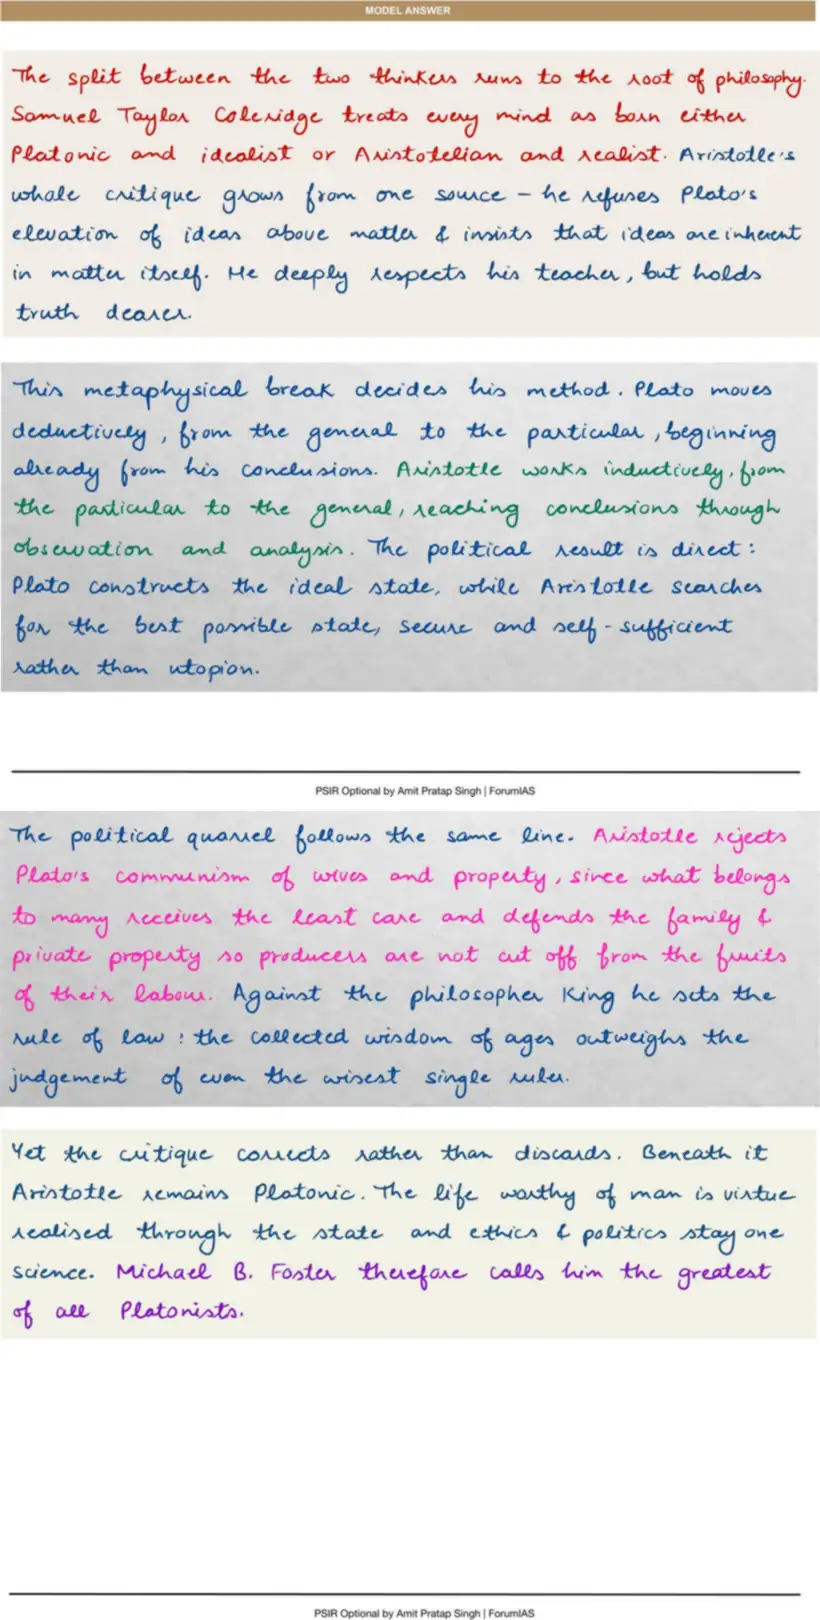 MODEL ANSWER
The split between the two thinkers runs to the root of philosophy.
Samuel Taylor Coleridge treats every mind as born either
Platonic and idealist or Aristotelian and realist. Aristotle's
whole critique grows from one source – he refuses Plato's
elevation of ideas above matter & insists that ideas are inherent
in matter itself. He deeply respects his teacher, but holds
truth dearer.
This metaphysical break decides his method. Plato moves
deductively, from the general to the particular, beginning
already from his conclusions. Aristotle works inductively, from
the particular to the general, reaching conclusions through
observation and analysis. The political result is direct:
Plato constructs the ideal state, while Aristotle searches
for the best possible state, secure and self-sufficient
rather than utopian.
PSIR Optional by Amit Pratap Singh | ForumIAS
The political quarrel follows the same line. Aristotle rejects
Plato's communism of wives and property, since what belongs
to many receives the least care and defends the family &
private property so producers are not cut off from the fruits
of their labour. Against the philosopher King he sets the
rule of law: the collected wisdom of ages outweighs the
judgement of even the wisest single ruler.
Yet the critique corrects rather than discards. Beneath it
Aristotle remains Platonic. The life worthy of man is virtue
realised through the state and ethics & politics stay one
science. Michael B. Foster therefore calls him the greatest
of all Platonists.
PSIR Optional by Amit Pratap Singh | ForumIAS